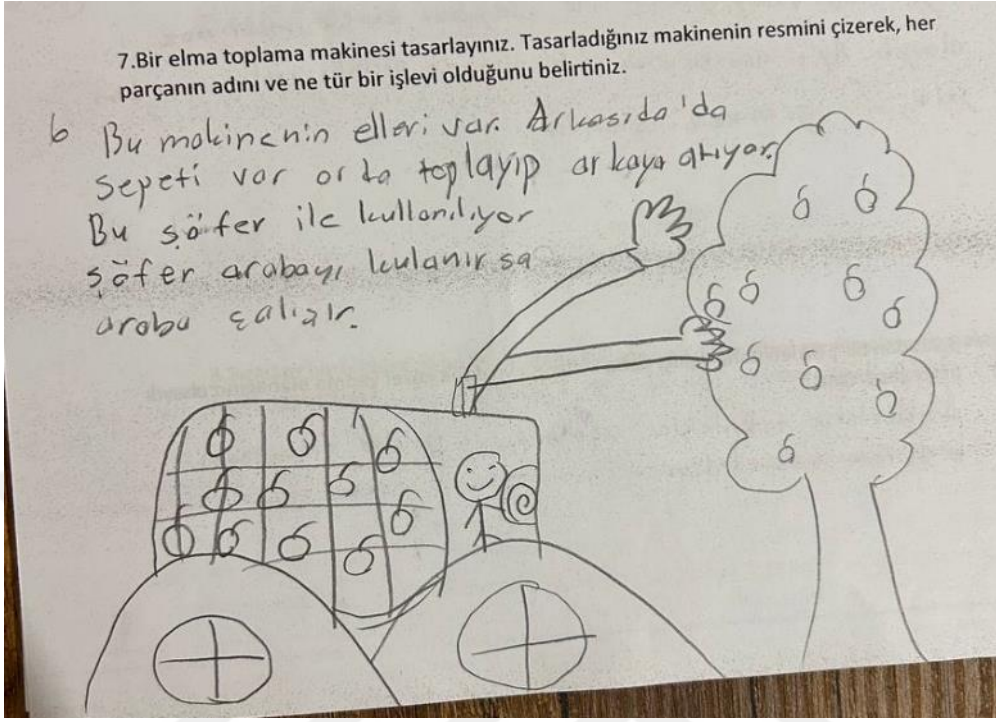 7.Bir elma toplama makinesi tasarlayınız. Tasarladığınız makinenin resmini çizerek, her
parçanın adını ve ne tür bir işlevi olduğunu belirtiniz.
6 Bu makinenin elleri var. Arkasıda'da
sepeti var orda toplayıp arkaya atıyor.
Bu şöfer ile kullanılıyor
şöfer arabayı kulanırsa
araba çalışır.